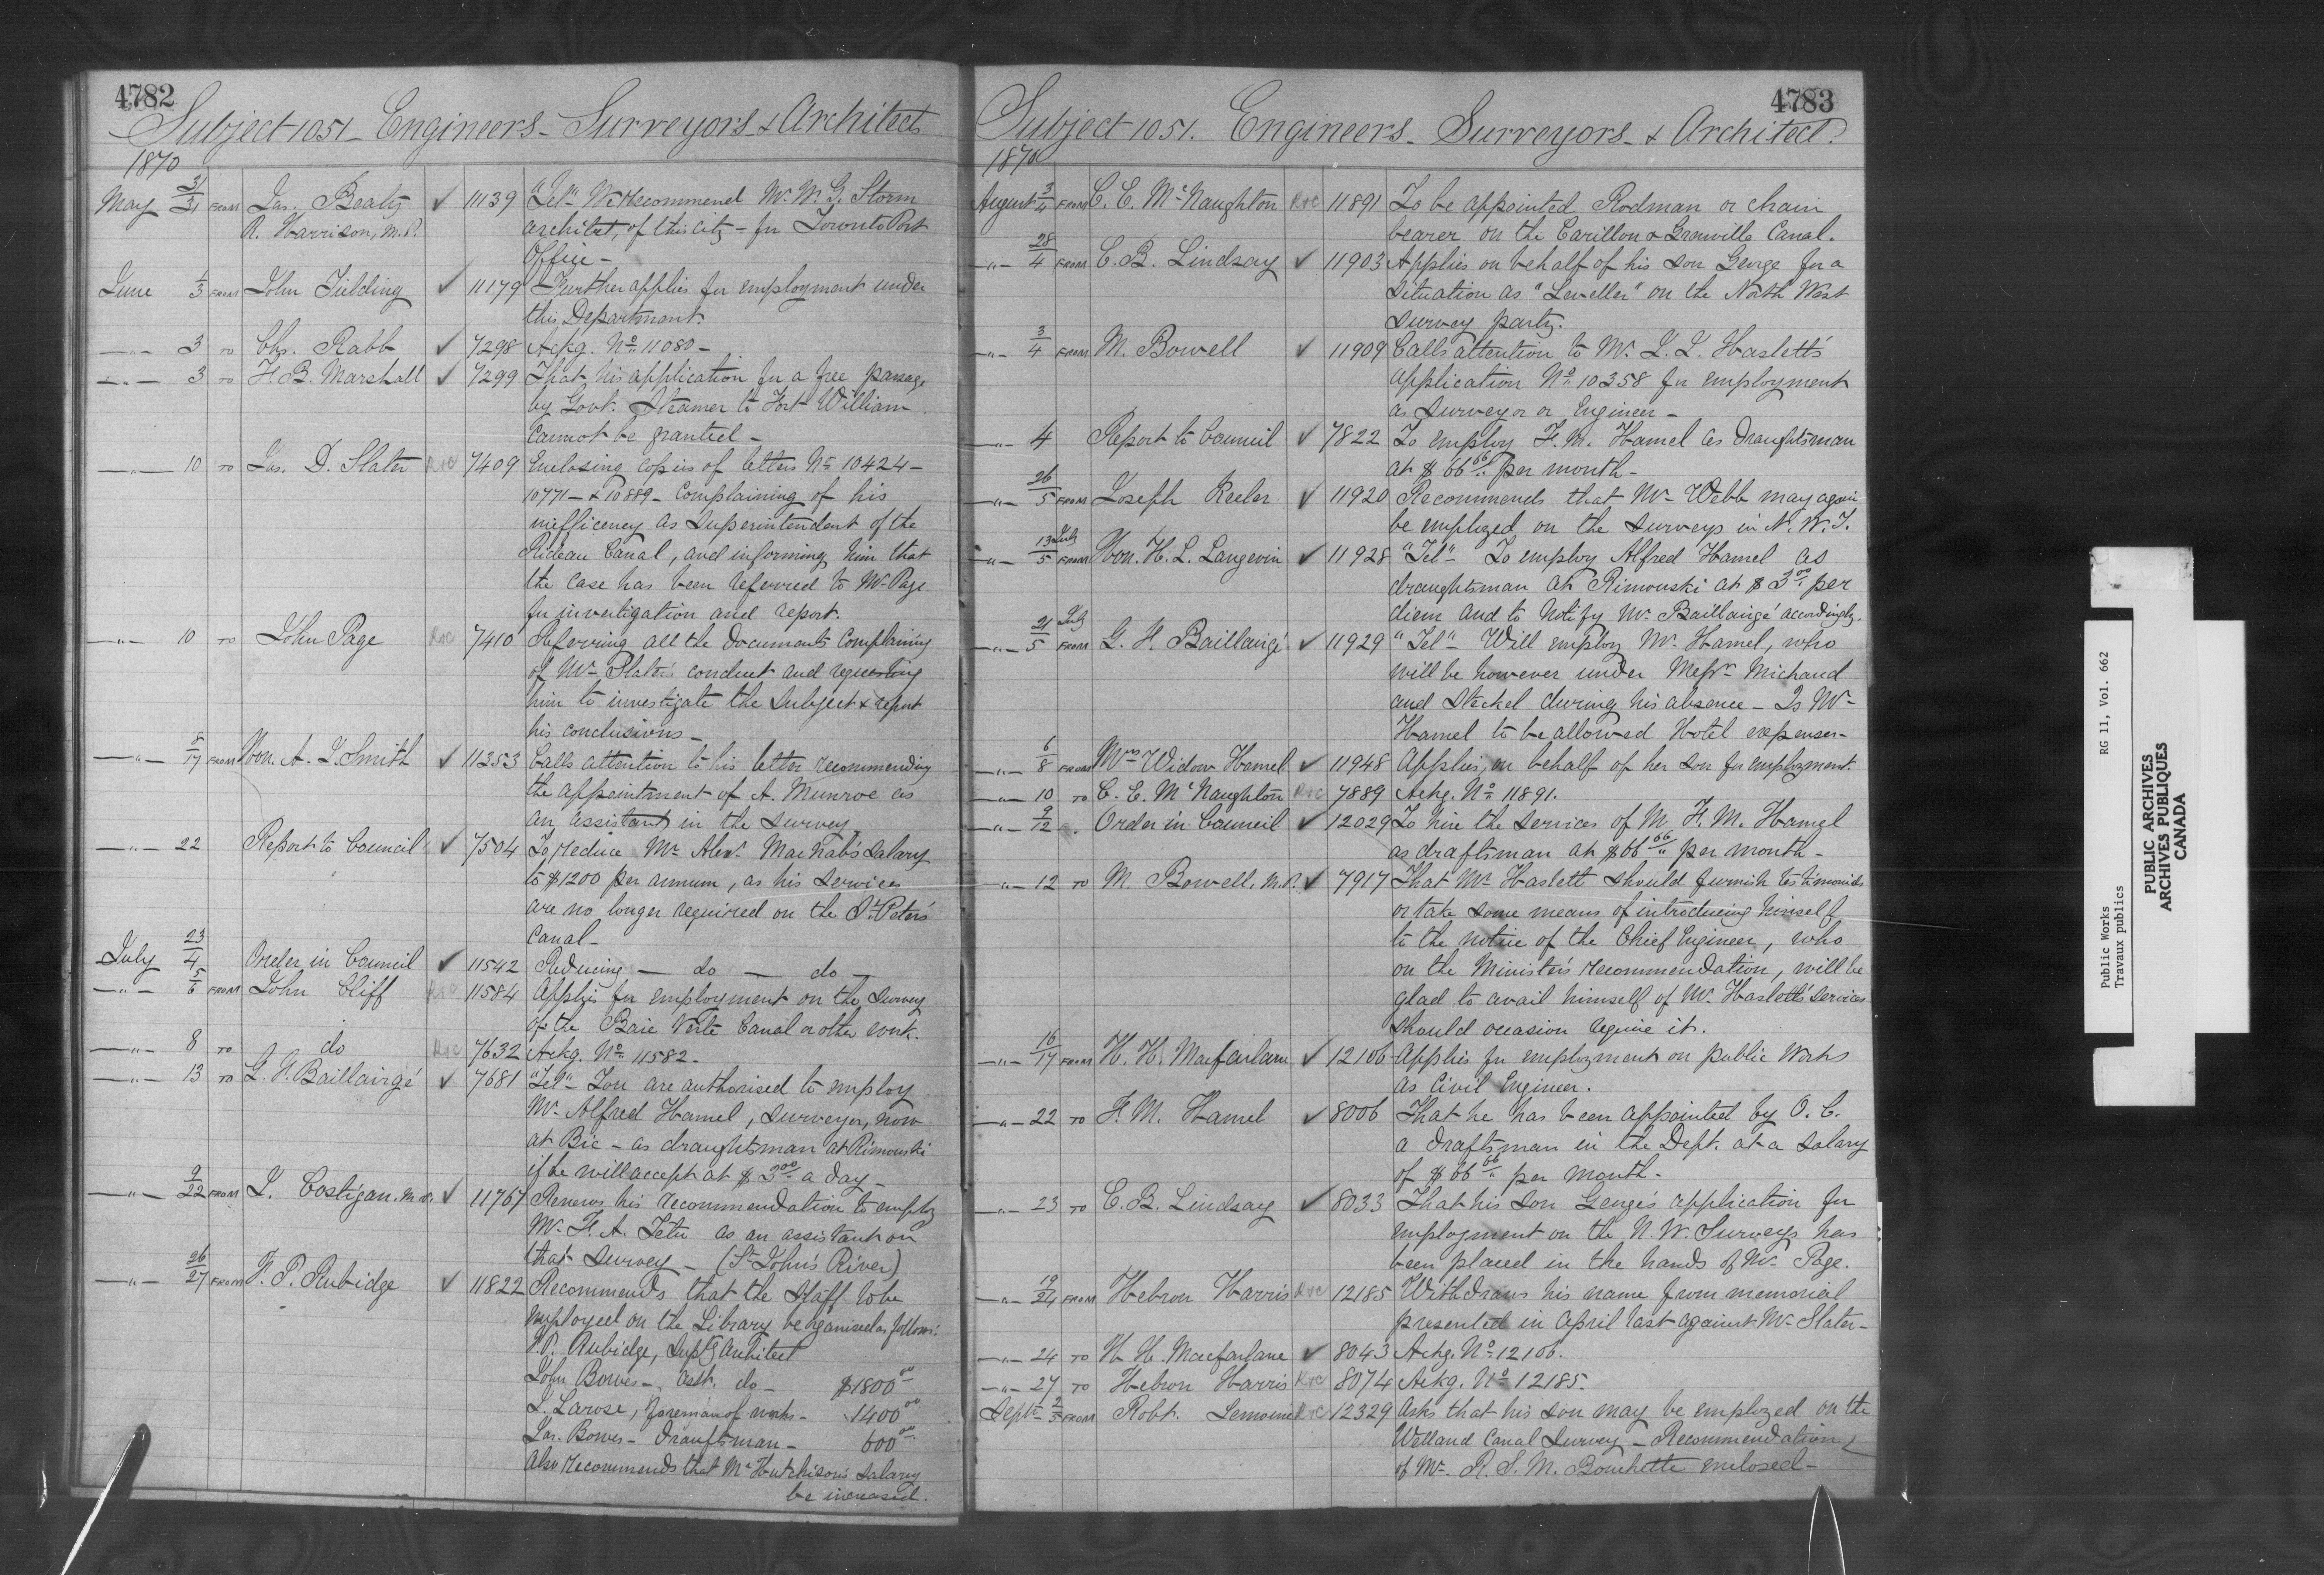 4782
Subject 1051 - Engineers - Surveyors & Architects
1870
May 31/31 FROM Jas. Beaty ✓ 11139 "Tel" We recommend Mr. W. G. Storm
R. Harrison, M.P. architect, of this city - for Toronto Post
Office -
June 1/3 FROM John Fielding ✓ 11179 Further applies for employment under
this Department.
—"— 3 TO Chs. Rabb ✓ 7298 Ackg. No. 11080 -
—"— 3 TO H. B. Marshall ✓ 7299 That his application for a free passage
by Govt. Steamer to Fort William
cannot be granted -
—"— 10 TO Jas. D. Slater R&C 7409 Enclosing copies of letters No. 10424 -
10771 - & 10889 - complaining of his
inefficency as Superintendent of the
Rideau Canal, and informing him that
the case has been referred to Mr. Page
for investigation and report.
—"— 10 TO John Page R&C 7410 Referring all the documents complaining
of Mr. Slater's conduct and requesting
him to investigate the subject & report
his conclusions -
—"— 8/17 FROM Hon. A. J. Smith ✓ 11253 Calls attention to his letter recommending
the appointment of A. Munroe as
an assistant in the survey
—"— 22 Report to Council ✓ 7504 To reduce Mr. Alexr. MacNab's salary
to $1200 per annum, as his services
are no longer required on the St. Peter's
Canal -
July 23/4 Order in Council ✓ 11542 Reducing — do — do —
—"— 5/6 FROM John Cliff R&C 11584 Applies for employment on the survey
of the Baie Verte Canal or other work.
—"— 8 TO do R&C 7632 Ackg. No. 11582 -
—"— 13 TO G. F. Baillairgé ✓ 7681 "Tel" You are authorised to employ
Mr. Alfred Hamel, surveyor, now
at Bic - as draughtsman at Rimouski
if he will accept at $3.00 a day -
—"— 9/22 FROM J. Costigan, M.P. ✓ 11767 Renews his recommendation to employ
Mr. F. A. Tetu as an assistant on
that survey - (St. John's River)
—"— 26/27 FROM F. P. Rubidge ✓ 11822 Recommends that the staff to be
employed on the Library be organised as follows:
F. P. Rubidge, Suptg Architect
John Bowes - Asst. do - $1800.00
J. Larose, foreman of works - 1400.00
Jas. Bowes - Draughtsman - 600.00
Also recommends that Mr. Hutchison's salary
be increased.
4783
Subject 1051. Engineers - Surveyors - & Architect.
1870
August 3/4 FROM C. E. McNaughton R&C 11891 To be appointed Rodman or chain
bearer on the Carillon & Grenville Canal.
—"— 28/4 FROM C. B. Lindsay ✓ 11903 Applies on behalf of his son George for a
situation as "Leveller" on the North West
survey party.
—"— 3/4 FROM M. Bowell ✓ 11909 Calls attention to Mr. J. J. Haslett's
application No. 10358 for employment
as surveyor or Engineer -
—"— 4 Report to Council ✓ 7822 To employ F. M. Hamel as draughtsman
at $66.66 per month -
—"— 26/5 FROM Joseph Keeler ✓ 11920 Recommends that Mr. Webb may again
be employed on the surveys in N. W. T.
—"— 13 July/5 FROM Hon. H. L. Langevin ✓ 11928 "Tel" - To employ Alfred Hamel as
draughtsman at Rimouski at $3.00 per
diem and to notify Mr. Baillairgé accordingly.
—"— 21 July/5 FROM G. F. Baillairgé ✓ 11929 "Tel" - Will employ Mr. Hamel, who
will be however under Messrs. Michaud
and Steckel during his absence - Is Mr.
Hamel to be allowed Hotel expenses -
—"— 6/8 FROM Mrs. Widow Hamel ✓ 11948 Applies, on behalf of her son for employment.
—"— 10 TO C. E. McNaughton R&C 7889 Ackg. No. 11891.
—"— 9/12 Order in Council ✓ 12029 To hire the services of Mr. F. M. Hamel
as draftsman at $66.66 per month -
—"— 12 TO M. Bowell, M.P. ✓ 7917 That Mr. Haslett should furnish testimonials
or take some means of introducing himself
to the notice of the Chief Engineer, who
on the Minister's recommendation, will be
glad to avail himself of Mr. Haslett's services
should occasion require it.
—"— 16/17 FROM H. H. Macfarlane ✓ 12106 Applies for employment on public works
as Civil Engineer.
—"— 22 TO F. M. Hamel ✓ 8006 That he has been appointed by O. C.
a draftsman in the Dept. at a salary
of $66.66 per month -
—"— 23 TO C. B. Lindsay ✓ 8033 That his son George's application for
employment on the N. W. Surveys has
been placed in the hands of Mr. Page.
—"— 19/24 FROM Hebron Harris R&C 12185 Withdraws his name from memorial
presented in April last against Mr. Slater -
—"— 24 TO H. H. Macfarlane ✓ 8043 Ackg. No. 12106.
—"— 27 TO Hebron Harris R&C 8074 Ackg. No. 12185.
Sept. 2/5 FROM Robt. Lemoine R&C 12329 Asks that his son may be employed on the
Welland Canal Survey - Recommendation
of Mr. R. S. M. Bouchette enclosed -
Public Works RG 11, Vol. 662
Travaux publics
PUBLIC ARCHIVES
ARCHIVES PUBLIQUES
CANADA